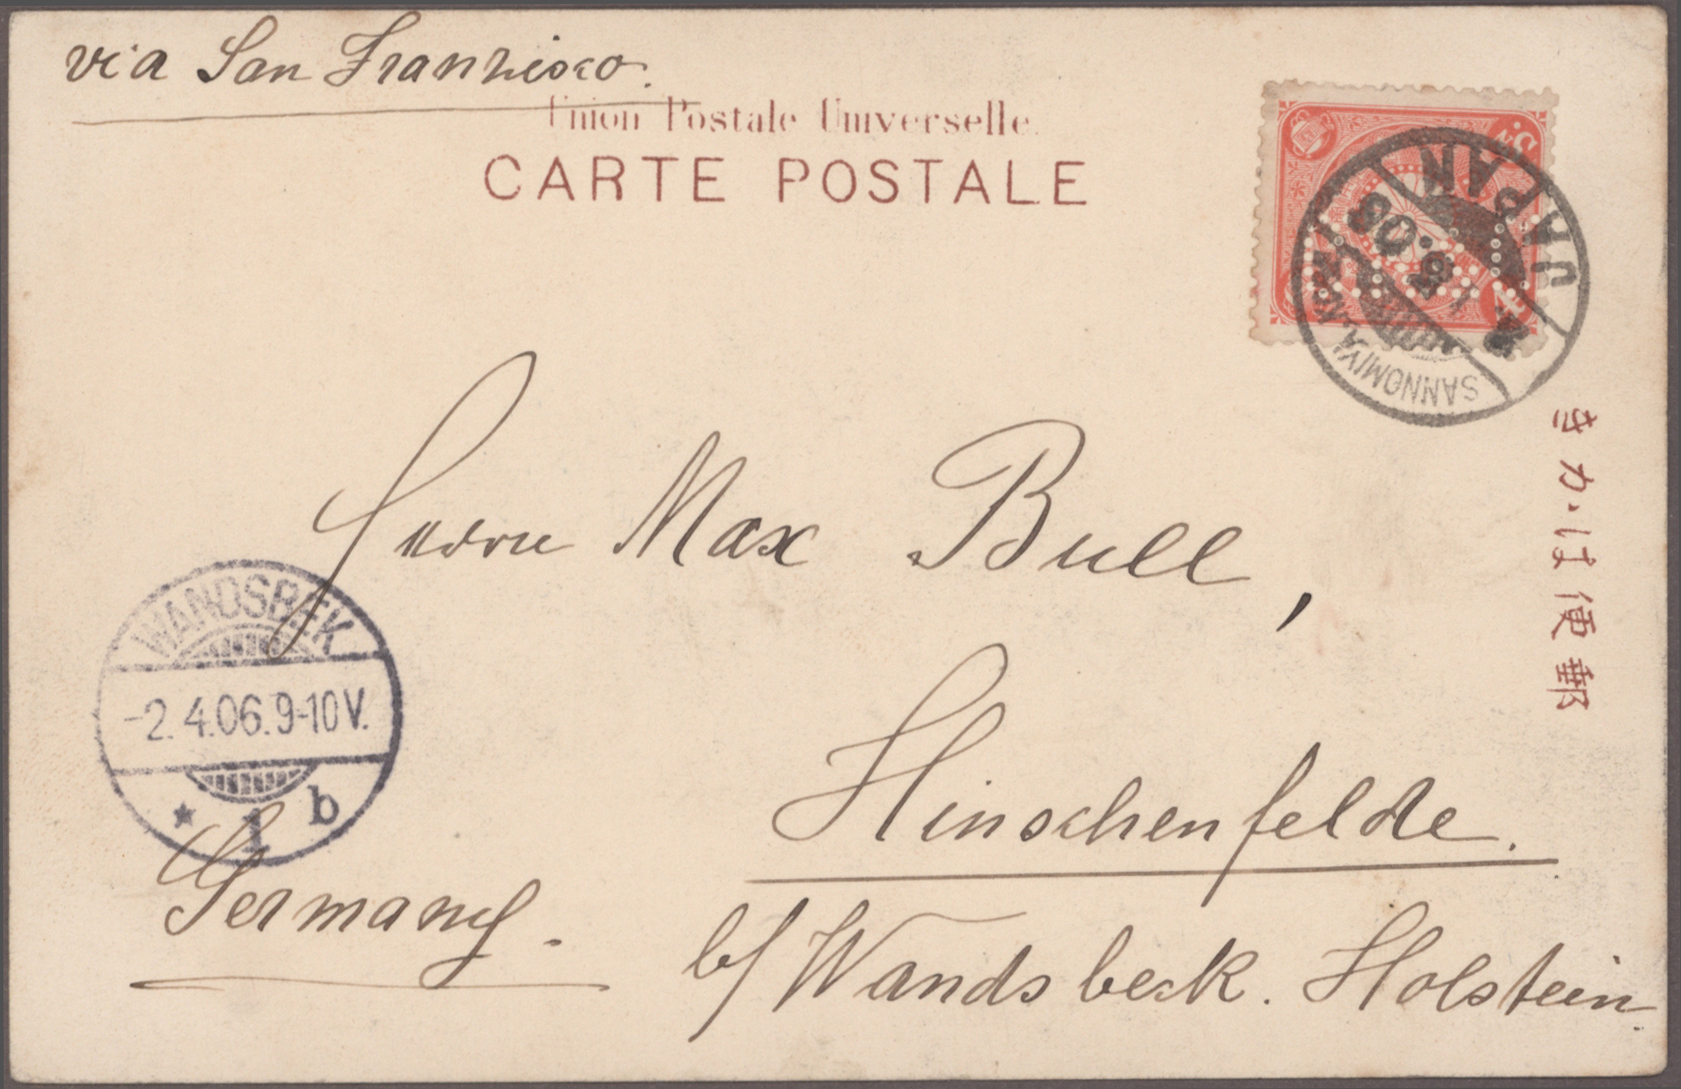 via San Franzisco.
Union Postale Universelle.
CARTE POSTALE
JAPAN
SANNOMIYA
4
SN.
きかは便郵
Herrn Max Bull,
WANDSBEK
-2.4.06.9-10V.
* 1 b
Hinschenfelde.
Germany.
b/ Wandsbeck. Holstein.